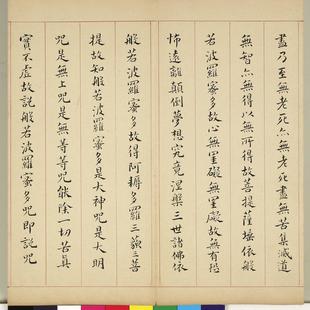 盡乃至無老死亦無老死盡無苦集滅道
無智亦無得以無所得故菩提薩埵依般
若波羅蜜多故心無罣礙無罣礙故無有恐
怖遠離顛倒夢想究竟涅槃三世諸佛依
般若波羅蜜多故得阿耨多羅三藐三菩
提故知般若波羅蜜多是大神咒是大明
咒是無上咒是無等等咒能除一切苦真
實不虛故說般若波羅蜜多咒即說咒